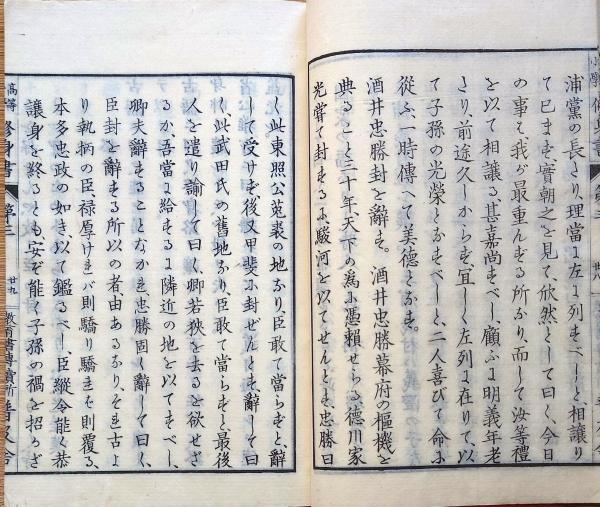 浦黨の長たり、理當に左に列すべしと、相讓り
て已まず、實朝之を見て、欣然として曰く、今日
の事は、我が最重んずる所なり、而して汝等禮
を以て相讓る、甚嘉尚すべし、顧ふに明義年老
たり、前途久しからず、宜しく左列に在りて、以
て子孫の光榮となすべしと、二人喜びて命に
從ふ、一時傳へて美德となす、
酒井忠勝封を辭す、酒井忠勝幕府の樞機を
典ること三十年、天下の爲に憑賴せらる、德川家
光嘗て封するに駿河を以てせんとす、忠勝曰
く、此東照公菟裘の地なり、臣敢て當らずと、辭
して受けず、後又甲斐に封ぜんとす、辭して曰
く、此武田氏の舊地なり、臣敢て當らずと、最後
人を遣り諭して曰く、卿若狹を去るを欲せざ
るか、吾當に給するに隣近の地を以てすべし、
卿夫辭することなかれ、忠勝固く辭して曰く、
臣封を辭する所以の者由あるなり、それ古よ
り執柄の臣祿厚ければ則驕り、驕ますば則覆る、
本多忠政の如き、以て鑑るべし、臣縱令能く恭
讓身を終るとも、安ぞ能く子孫の禍を招かざ
高等 修身書 第三 廿九 教育書專賣所